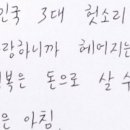 민국 3대 헛소리
랑하니까 헤어지는
복은 돈으로 살 수
은 아침